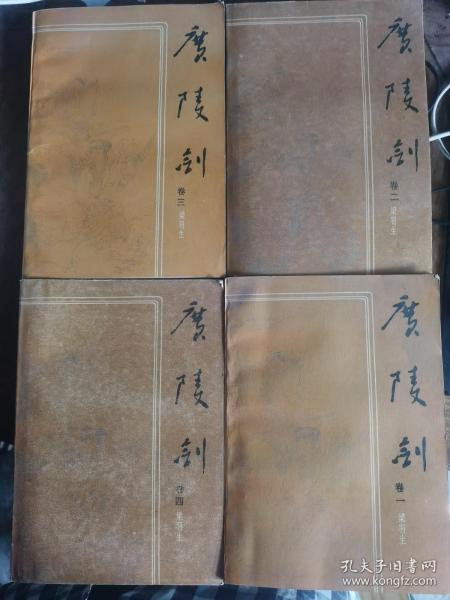 廣陵劍
卷三
梁羽生
廣陵劍
卷二
梁羽生
廣陵劍
卷四
梁羽生
廣陵劍
卷一
梁羽生
孔夫子旧书网
www.kongfz.com